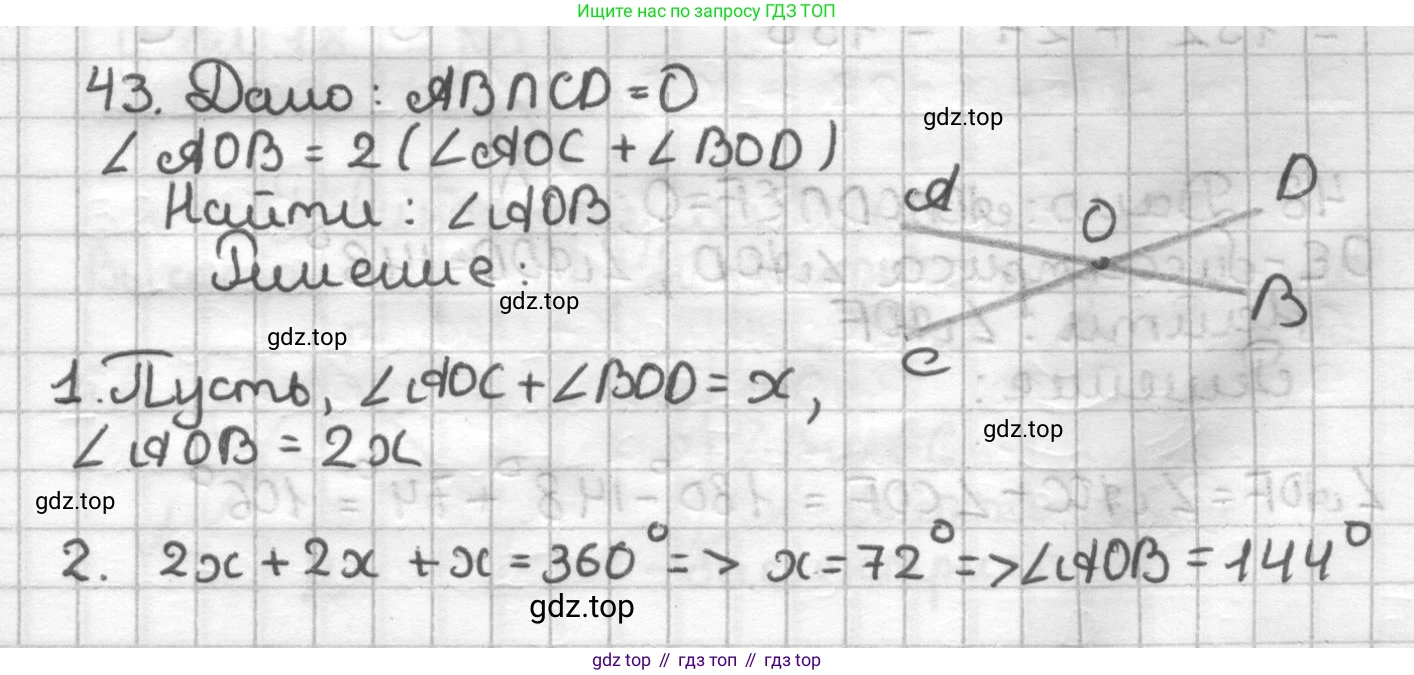 Ищите нас по запросу ГДЗ ТОП
43. Дано: AB∩CD=O
∠AOB = 2(∠AOC + ∠BOD)
Найти: ∠AOB
Решение:
gdz.top
A
O
D
B
C
gdz.top
gdz.top
1. Пусть, ∠AOC + ∠BOD = x,
∠AOB = 2x
gdz.top
gdz.top
2. 2x + 2x + x = 360° => x = 72° => ∠AOB = 144°
gdz.top
gdz top // гдз топ // гдз top